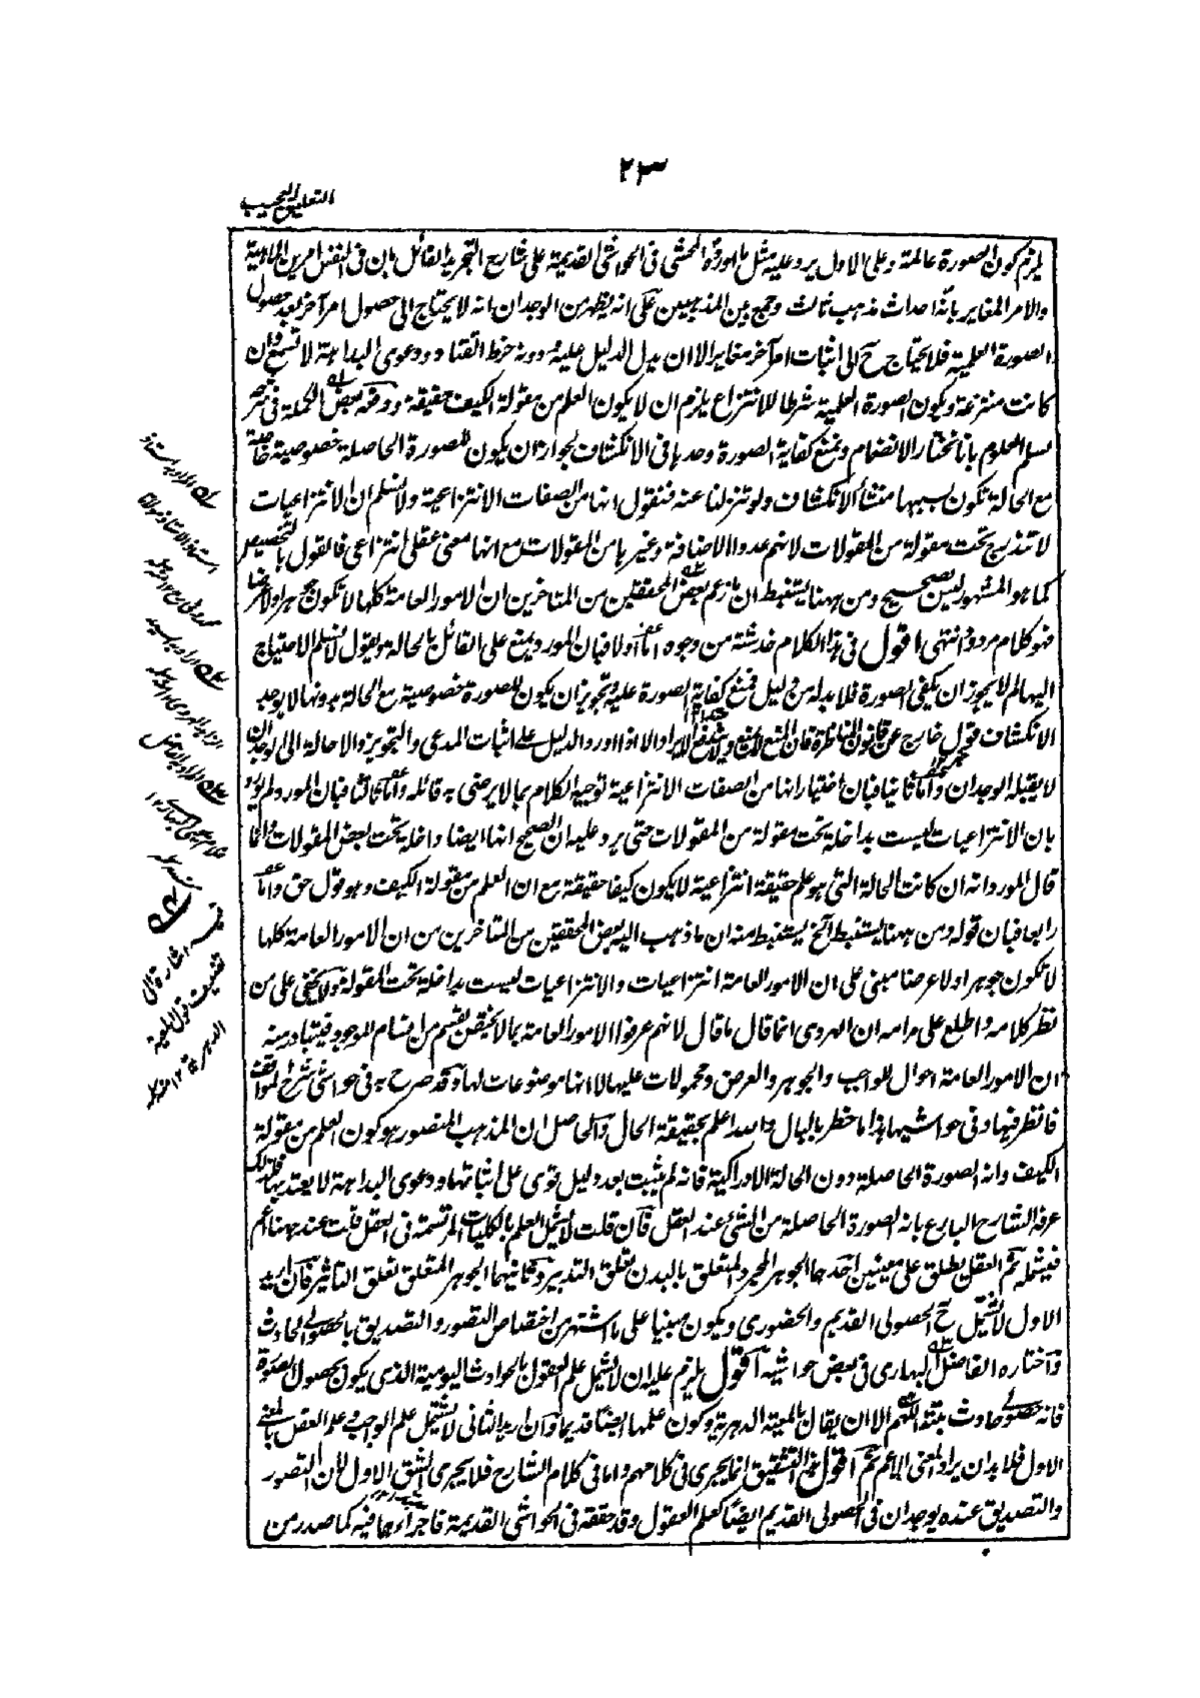 ٢٣
التعليق العجيب
يلزم كون الصورة عالمة وعلى الاول يرد عليه مثل ما اورده المحشى فى الحواشى القديمة على شارح التجريد القائل بان فى النفس امرين الماهية
والامر المغاير بانه احداث مذهب ثالث وجمع بين المذهبين على انه يظهر من الوجدان انه لا يحتاج الى حصول امر آخر بعد حصول
الصورة العلمية فلا يحتاج ح الى اثبات امر آخر مغاير الا ان يدل الدليل عليه ودونه خرط القتاد ودعوى البداهة لا تسمع وان
كانت منتزعة ويكون الصورة العلمية شرطا للانتزاع يلزم ان لا يكون العلم من مقولة الكيف حقيقة ودفعه بعض الكملة فى شرحه
لسلم العلوم بانا نختار الانضمام ونمنع كفاية الصورة وحدها فى الانكشاف لجواز ان يكون للصورة الحاصلة خصوصية خاصة
مع الحالة تكون بسببها منشأ الانكشاف ولو تنزلنا عنه فنقول انها من الصفات الانتزاعية ولا نسلم ان الانتزاعيات
لا تندرج تحت مقولة من المقولات لانهم عدوا الاضافة وغيرها من المقولات مع انها معنى عقلى انتزاعى فالقول بالتخصيص
كما هو المشهور ليس بصحيح ومن ههنا يستنبط ان ما زعم بعض المحققين من المتاخرين ان الامور العامة كلها لا تكون جوهرا ولا عرضا
فهو كلام مردود انتهى اقول فى هذا الكلام خدشة من وجوه اما اولا فبان المورد يمنع على القائل بالحالة ويقول لا نسلم الاحتياج
اليها لم لا يجوز ان يكفى الصورة فلا بد له من دليل فمنع كفاية الصورة عليه وتجويز ان يكون للصورة خصوصية مع الحالة بدونها لا يوجد
الانكشاف قول خارج عن قانون المناظرة فان المنع لا يمنع ولا يندفع الايراد الا اذا اورد الدليل على اثبات المدعى والتجويز والاحالة الى الوجدان
لا يقبله الوجدان واما ثانيا فبان اختيار انها من الصفات الانتزاعية توجيه الكلام بما لا يرضى به قائله واما ثالثا فبان المورد لم يورد
بان الانتزاعيات ليست بداخلة تحت مقولة من المقولات حتى يرد عليه ان الصحيح انها ايضا داخلة تحت بعض المقولات وانما
قال المورد انه ان كانت الحالة التى هو علم حقيقة انتزاعية لا يكون كيفا حقيقة مع ان العلم من مقولة الكيف وهو قول حق واما
رابعا فبان قوله ومن ههنا يستنبط الخ يستنبط منه ان ما ذهب اليه بعض المحققين من المتاخرين من ان الامور العامة كلها
لا تكون جوهرا ولا عرضا مبنى على ان الامور العامة انتزاعيات والانتزاعيات ليست بداخلة تحت المقولة ولا يخفى على من
نظر كلامه واطلع على مرامه ان الهروى انما قال ما قال لانهم عرفوا الامور العامة بما لا يختص بقسم من اقسام الموجود فيتبادر منه
ان الامور العامة احوال للواجب والجوهر والعرض ومحمولات عليها لا انها موضوعات لها وقد صرح به فى حواشى شرح المواقف
فانظر فيها وفى حواشيها هذا ما خطر بالبال والله اعلم بحقيقة الحال والحاصل ان المذهب المنصور هو كون العلم من مقولة
الكيف وانه الصورة الحاصلة دون الحالة الادراكية فانه لم يثبت بعد دليل قوى على اثباتها ودعوى البداهة لا يعتد بها فلذلك
عرفه الشارح البارع بانه الصورة الحاصلة من الشئ عند العقل فان قلت لا يشمل العلم بالكليات المرتسمة فى العقل قلت عند ههنا اعم
فيشمله ثم العقل يطلق على معنيين احدهما الجوهر المجرد المتعلق بالبدن تعلق التدبير وثانيهما الجوهر المتعلق تعلق التاثير فان اريد
الاول لا يشمل ح الحصولى القديم والحضورى ويكون مبنيا على ما اشتهر من اختصاص التصور والتصديق بالحصولى الحادث
واختاره الفاضل البهارى فى بعض حواشيه اقول يلزم عليه ان لا يشمل علم العقول بالحوادث اليومية الذى يكون بحصول الصورة
فانه حصولى حادث بتة اللهم الا ان يقال بالمعية الدهرية وكون علمها ايضا قديما وان اريد الثانى لا يشمل علم الواجب وعلم العقل بالمعنى
الاول فلا بد ان يراد المعنى الاعم ثم اقول هذا التشقيق انما يجرى فى كلامهم واما فى كلام الشارح فلا يجرى الشق الاول لان التصور
والتصديق عنده يوجدان فى الحصولى القديم ايضا كعلم العقول وقد حققه فى الحواشى القديمة فاجراءها فيه كما صدر من